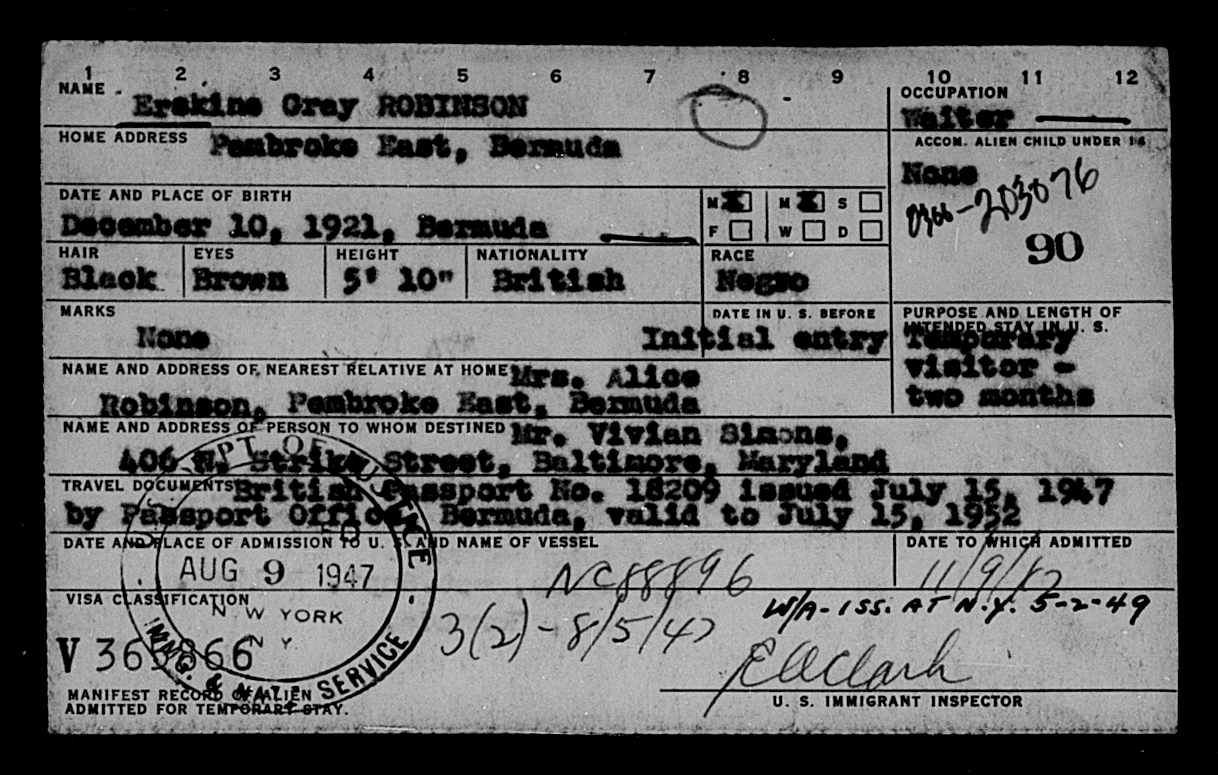 1 2 3 4 5 6 7 8 9 10 11 12
NAME Erskine Gray ROBINSON
OCCUPATION
Waiter
HOME ADDRESS Pembroke East, Bermuda
ACCOM. ALIEN CHILD UNDER 14
None
0366-203076
90
DATE AND PLACE OF BIRTH
December 10, 1921, Bermuda
M X M X S
F W D
HAIR EYES HEIGHT NATIONALITY RACE
Black Brown 5' 10" British Negro
MARKS
None
DATE IN U. S. BEFORE
Initial entry
PURPOSE AND LENGTH OF
INTENDED STAY IN U. S.
Temporary
visitor -
two months
NAME AND ADDRESS OF NEAREST RELATIVE AT HOME Mrs. Alice
Robinson, Pembroke East, Bermuda
NAME AND ADDRESS OF PERSON TO WHOM DESTINED Mr. Vivian Simons,
406 N. Strike Street, Baltimore, Maryland
TRAVEL DOCUMENTS British Passport No. 18209 issued July 15, 1947
by Passport Office, Bermuda, valid to July 15, 1952
DATE AND PLACE OF ADMISSION TO U. S. AND NAME OF VESSEL
NC88896
DATE TO WHICH ADMITTED
11/9/47
AUG 9 1947
NEW YORK
N Y
IMMG. & NATZ SERVICE
VISA CLASSIFICATION
3(2)-8/5/47
W/A-ISS. AT N.Y. 5-2-49
V 363866
E A Clark
MANIFEST RECORD OF ALIEN
ADMITTED FOR TEMPORARY STAY.
U. S. IMMIGRANT INSPECTOR